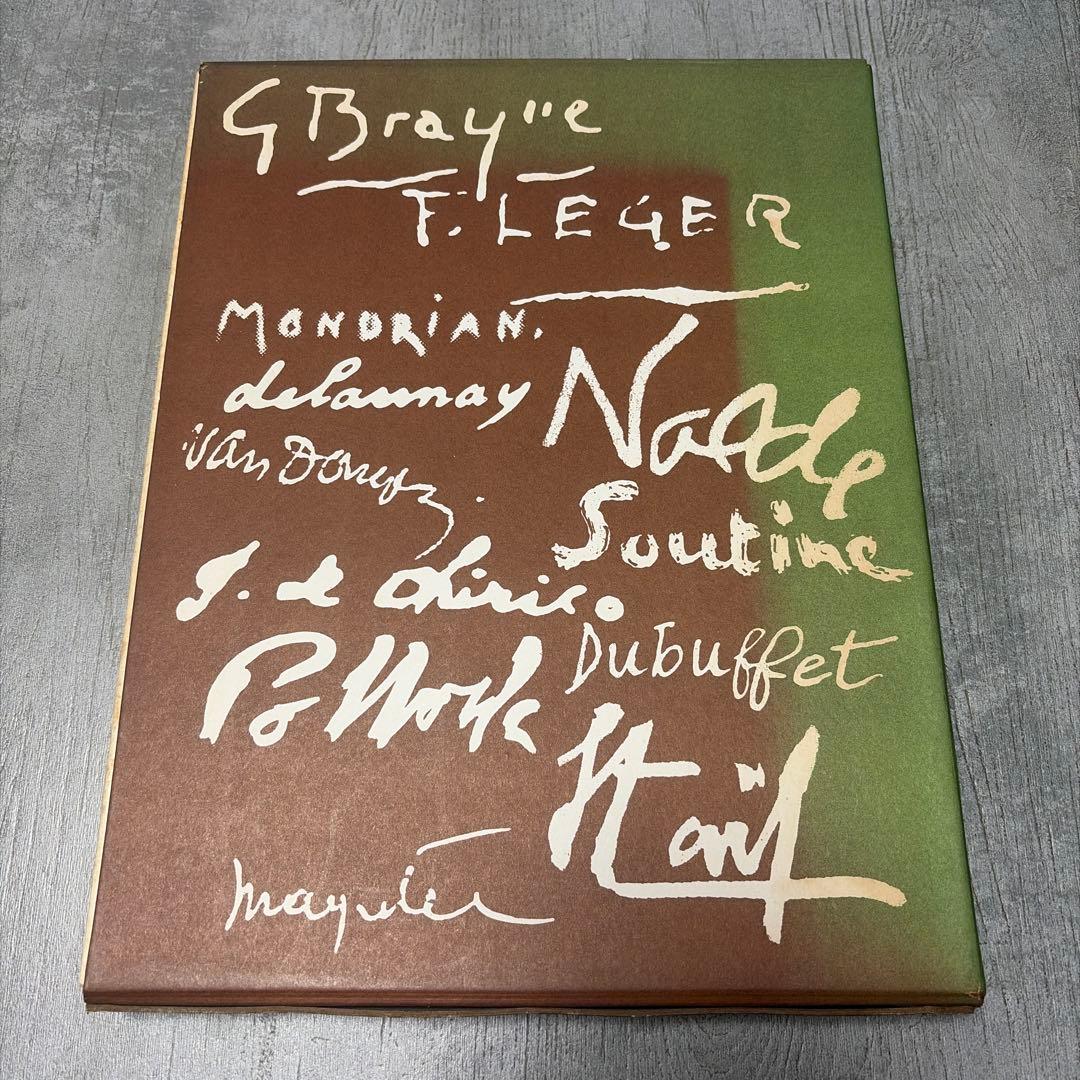 G Braque
F. LEGER
MONDRIAN.
Nolde
delaunay
Van Dongen.
Soutine
G. de Chirico
Dubuffet
Pollock
Staël
Magritte